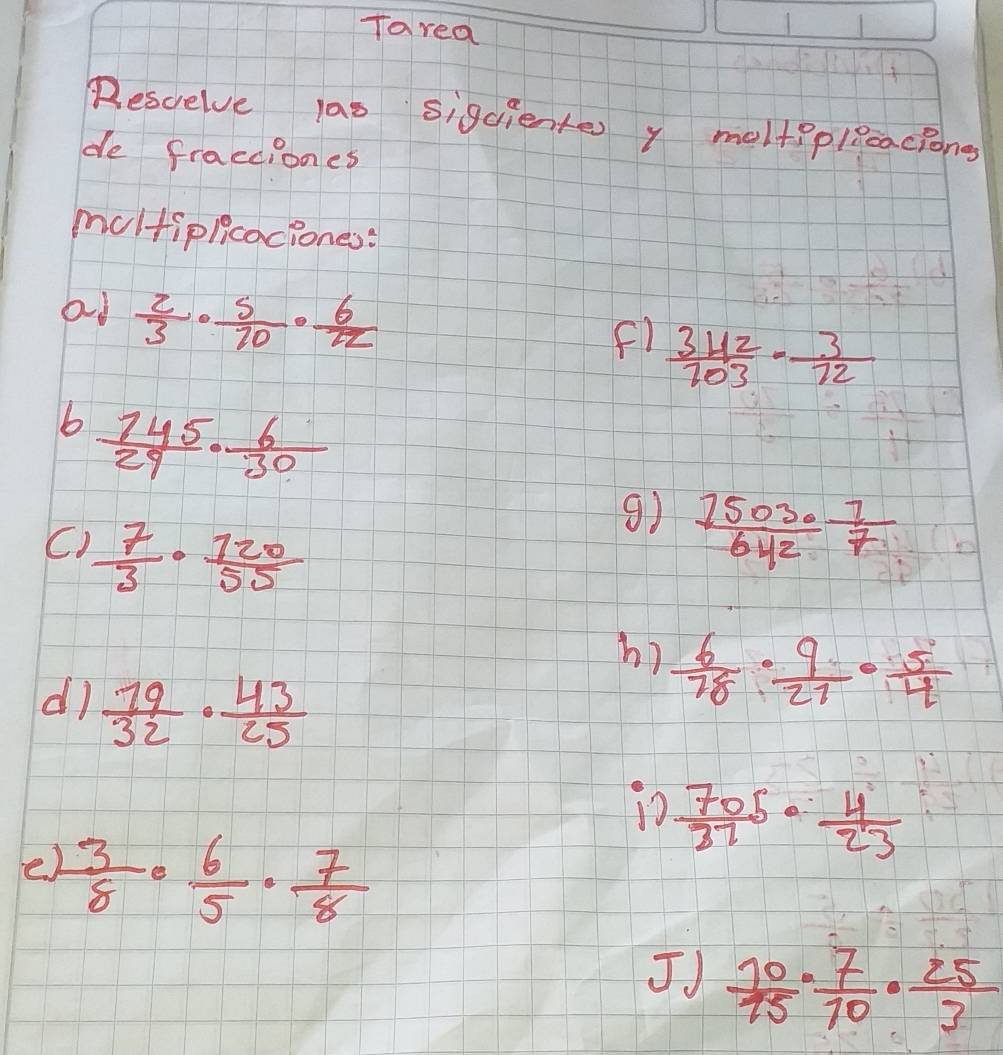 Tarea
Resuelve las siguientes y multiplicaciones
de fracciones
multiplicaciones:
a) 2/3 · 5/10 · 6/12
b 145/29 · 6/30
c) 7/3 · 120/55
d) 19/32 · 43/25
e) 3/8 · 6/5 · 7/8
f) 342/103 · 3/12
g) 1503/642 · 1/7
h) 6/18 · 9/21 · 5/4
i) 105/31 · 4/23
J) 10/15 · 7/10 · 25/3